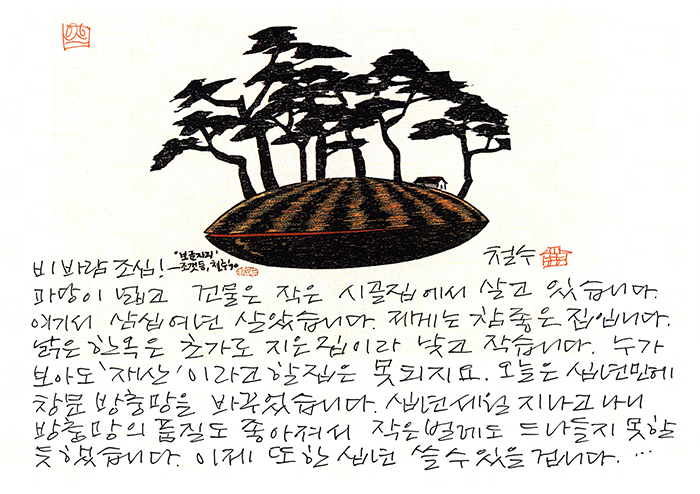 "보물지도"
비바람 조심! - 조갯등, 철수 90
철수
마당이 넓고 건물은 작은 시골집에서 살고 있습니다.
여기서 삼십여년 살았습니다. 제게는 참 좋은 집입니다.
낡은 한옥은 초가로 지은 집이라 낮고 작습니다. 누가
보아도 '재산'이라고 할 집은 못되지요. 오늘은 십년만에
창문 방충망을 바꾸었습니다. 십년세월 지나고 나니
방충망의 품질도 좋아져서 작은벌레도 드나들지 못할
듯 했습니다. 이제 또 한 십년 쓸 수 있을 겁니다. …